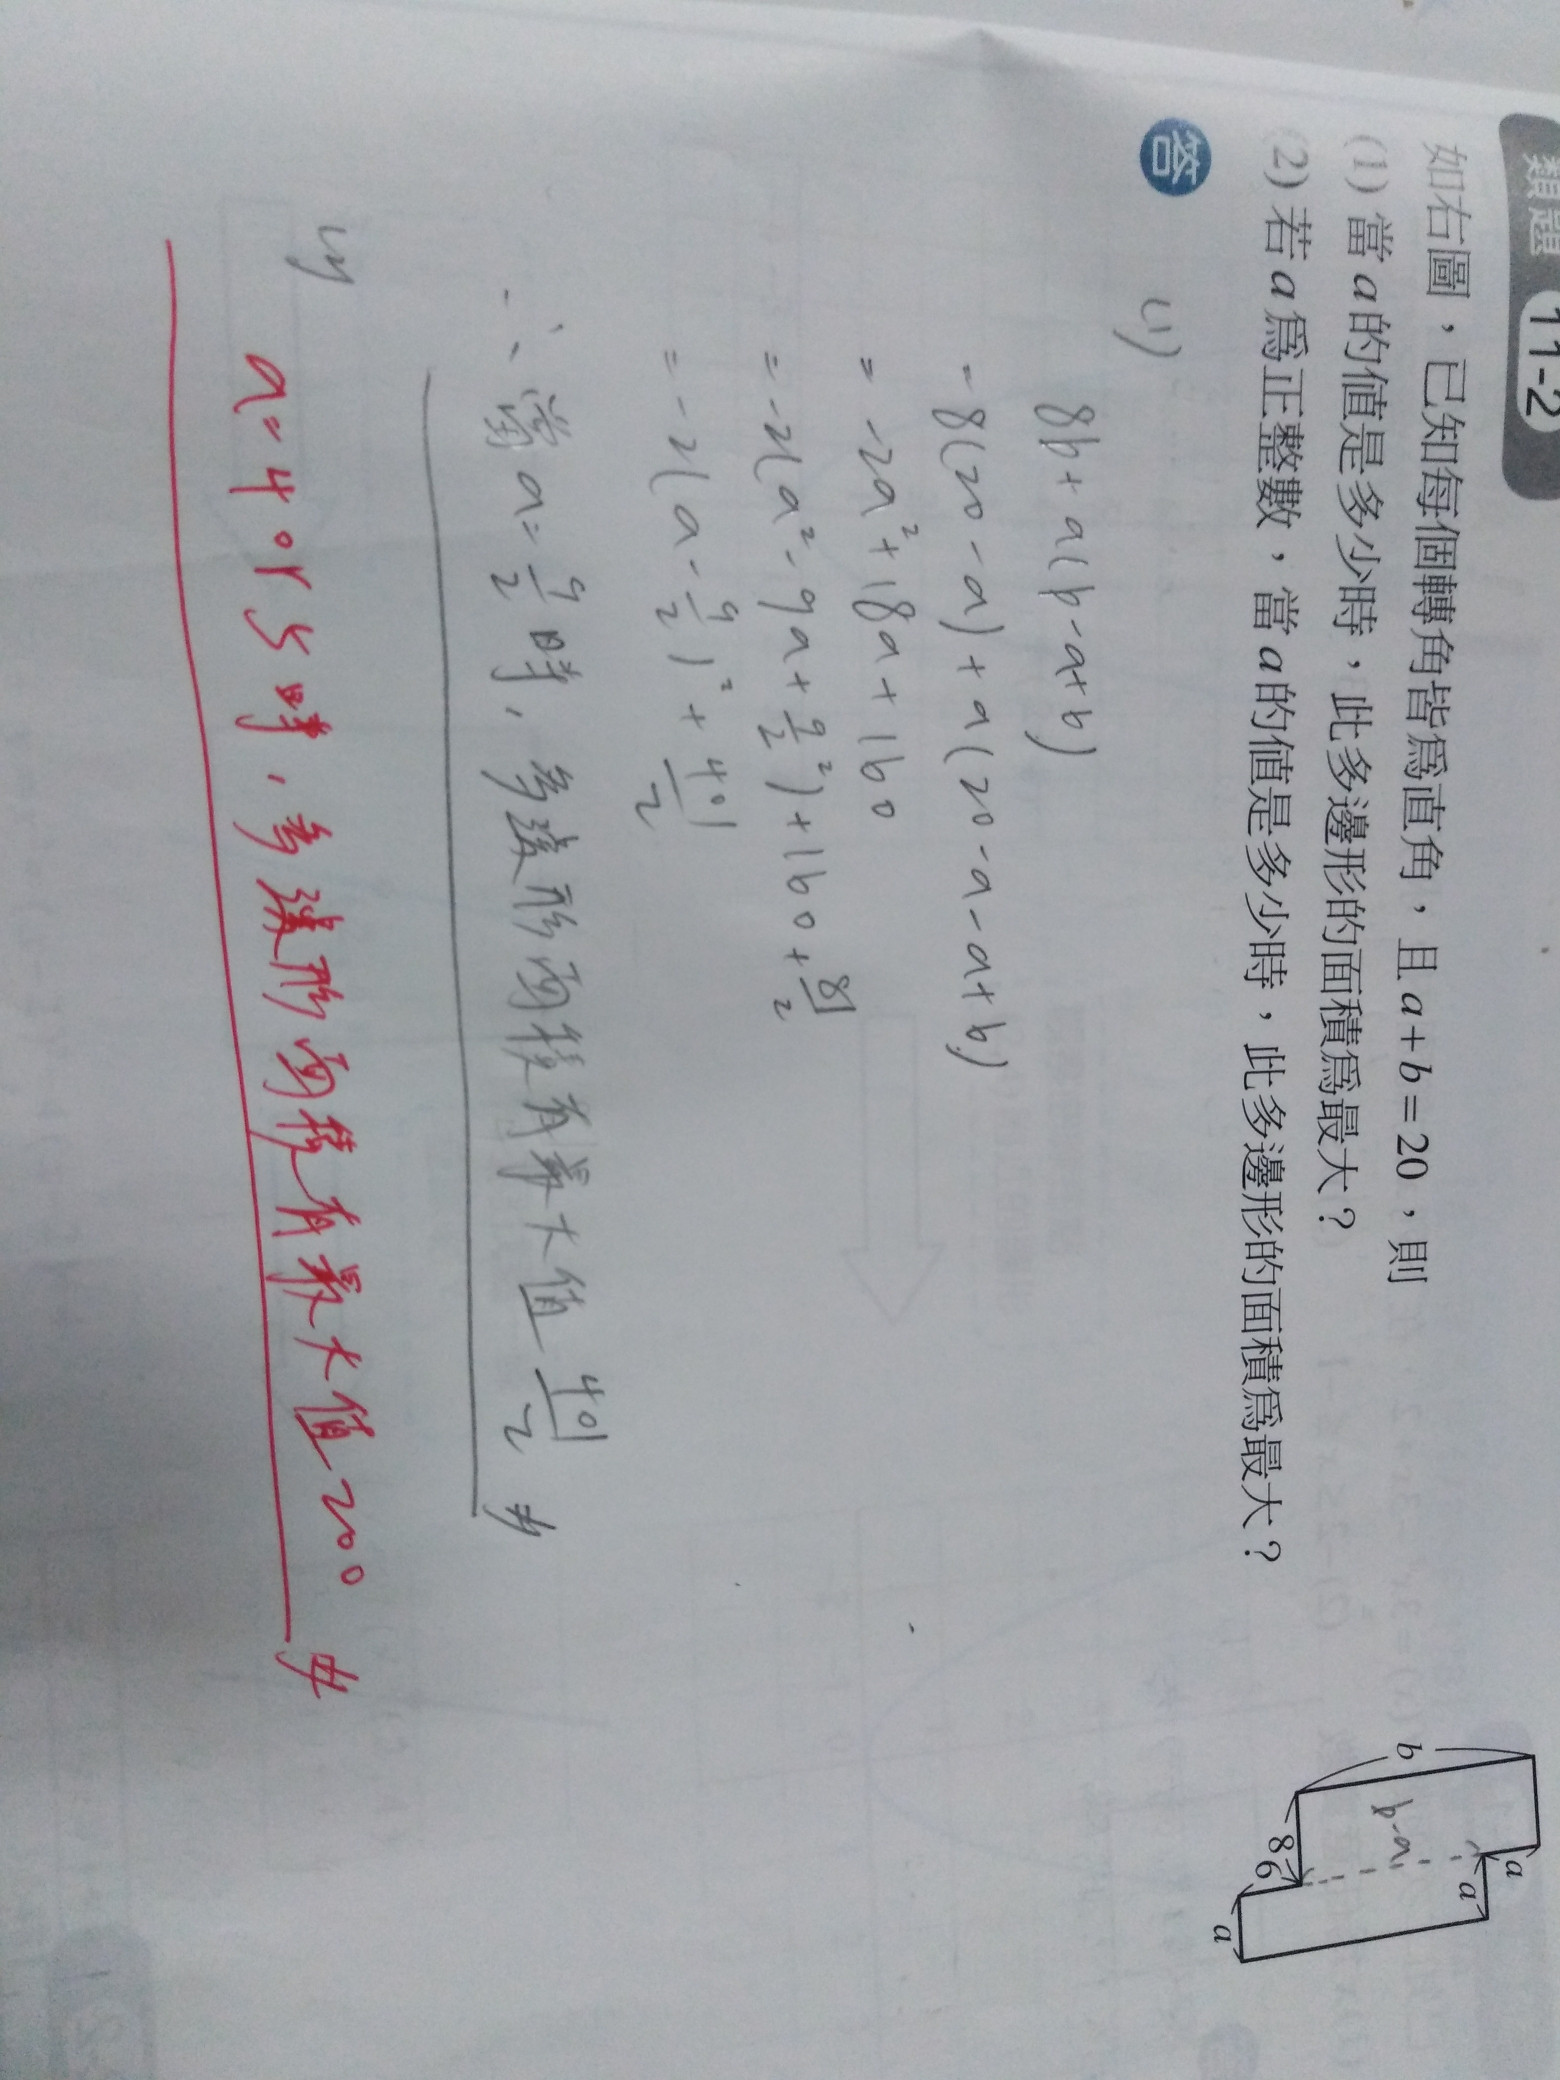 類題 11-2
如右圖，已知每個轉角皆為直角，且a+b=20，則
(1) 當a的值是多少時，此多邊形的面積為最大？
(2) 若a為正整數，當a的值是多少時，此多邊形的面積為最大？
b
b-a
a
a
8
6
a
答
(1)
8b+a(b-a+6)
=8(20-a)+a(20-a-a+6)
=-2a²+18a+160
=-2(a²-9a+9/2²)+160+81/2
=-2(a-9/2)²+401/2
∴當a=9/2時，多邊形面積有最大值401/2 #
(2)
a=4 or 5時，多邊形面積有最大值200 #